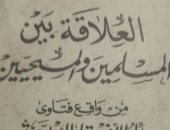 العلاقة بين
المسلمين والمسيحيين
من واقع فتاوى